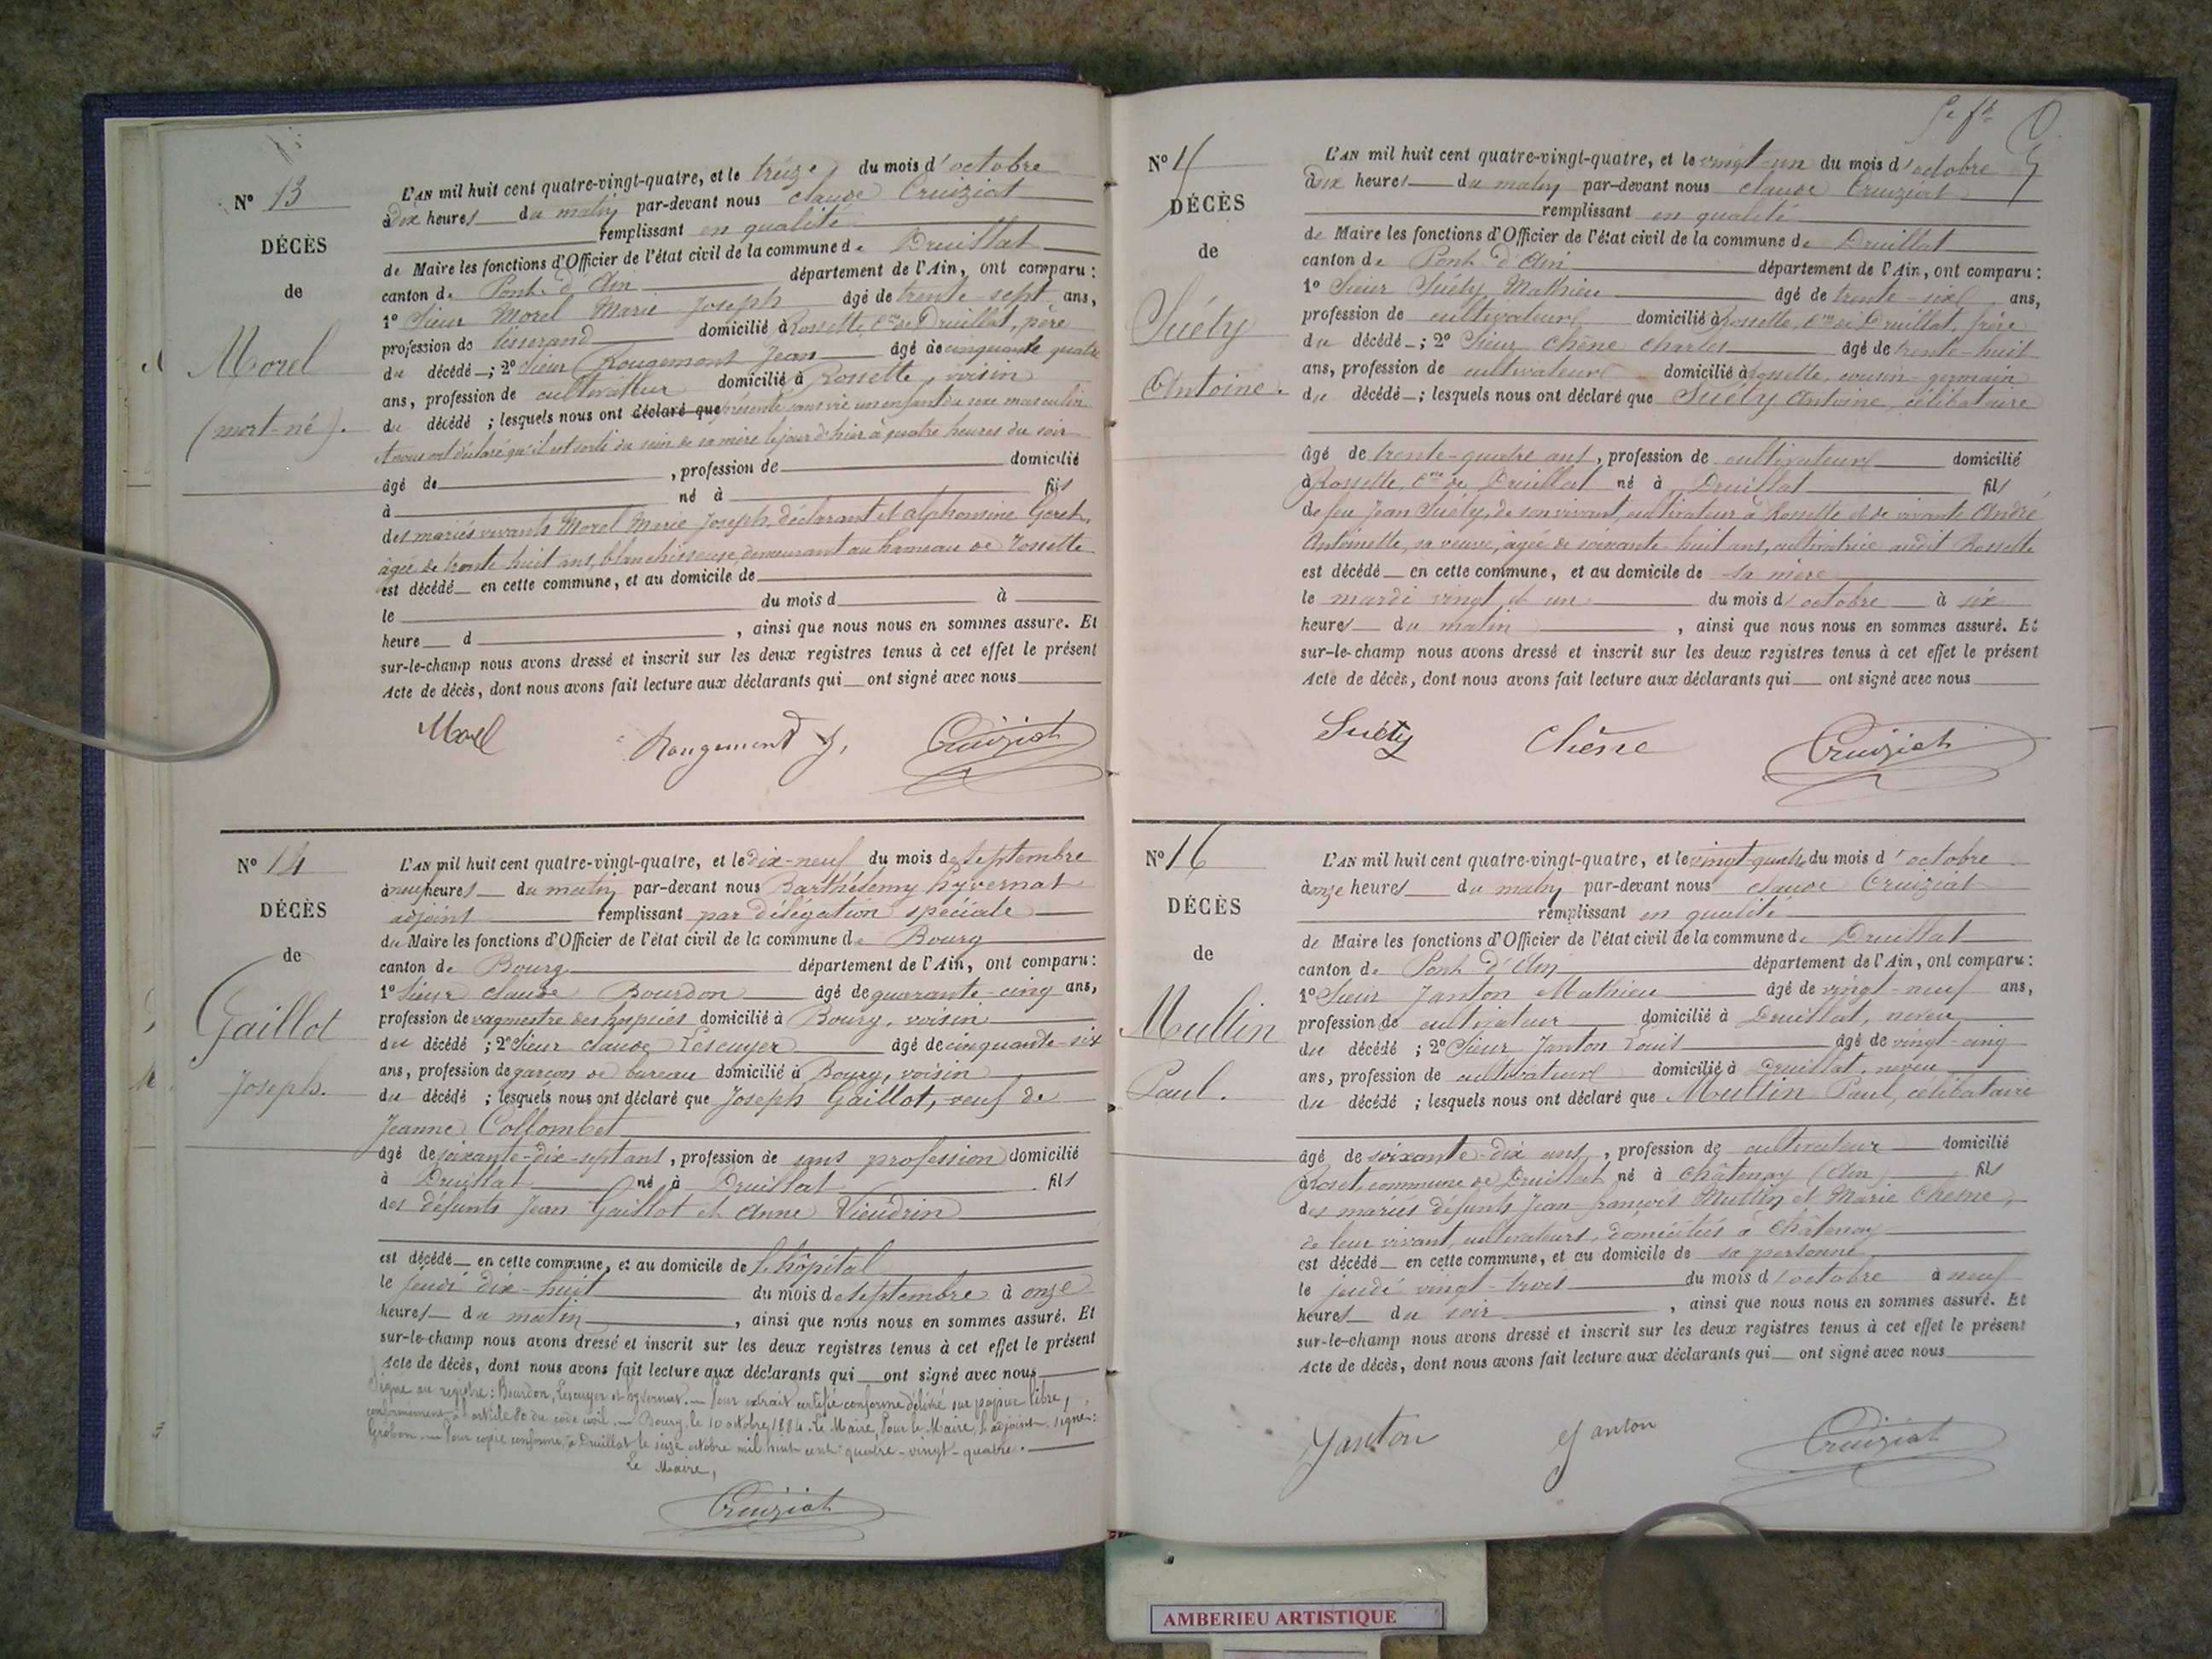 Nº 13
DÉCÈS
de
Morel
(mort-né).
L'AN mil huit cent quatre-vingt-quatre, et le treize du mois d'octobre
à dix heures du matin par-devant nous Claude Cruiziat
remplissant en qualité
de Maire les fonctions d'Officier de l'état civil de la commune de Druillat
canton de Pont-d'Ain département de l'Ain, ont comparu :
1º Sieur Morel Marie Joseph âgé de trente-sept ans,
profession de tisserand domicilié à Rossette Cne de Druillat, père
du décédé ; 2º Sieur Rougemont Jean âgé de cinquante quatre
ans, profession de cultivateur domicilié à Rossette, voisin
du décédé ; lesquels nous ont déclaré que présenté sans vie un enfant du sexe masculin
et nous ont déclaré qu'il est sorti du sein de sa mère le jour d'hier à quatre heures du soir
âgé de , profession de domicilié
à né à fils
des mariés vivants Morel Marie Joseph, déclarant et Alphonsine Goret,
âgée de trente huit ans, blanchisseuse, demeurant au hameau de Rossette
est décédé en cette commune, et au domicile de
le du mois d à
heure d , ainsi que nous nous en sommes assuré. Et
sur-le-champ nous avons dressé et inscrit sur les deux registres tenus à cet effet le présent
Acte de décès, dont nous avons fait lecture aux déclarants qui ont signé avec nous
Morel Rougemont J. Cruiziat
Nº 14
DÉCÈS
de
Gaillot
Joseph.
L'AN mil huit cent quatre-vingt-quatre, et le dix-neuf du mois de septembre
à neuf heures du matin par-devant nous Barthélemy Hyvernat
adjoint remplissant par délégation spéciale
du Maire les fonctions d'Officier de l'état civil de la commune de Bourg
canton de Bourg département de l'Ain, ont comparu :
1º Sieur Claude Bourdon âgé de quarante-cinq ans,
profession de vaguemestre des hospices domicilié à Bourg, voisin
du décédé ; 2º Sieur Claude Lescuyer âgé de cinquante-six
ans, profession de garçon de bureau domicilié à Bourg, voisin
du décédé ; lesquels nous ont déclaré que Joseph Gaillot, veuf de
Jeanne Collombet
âgé de soixante-dix-sept ans, profession de sans profession domicilié
à Druillat né à Druillat fils
des défunts Jean Gaillot et Anne Vieudrin
est décédé en cette commune, et au domicile de l'hôpital
le jeudi dix-huit du mois de septembre à onze
heures du matin , ainsi que nous nous en sommes assuré. Et
sur-le-champ nous avons dressé et inscrit sur les deux registres tenus à cet effet le présent
Acte de décès, dont nous avons fait lecture aux déclarants qui ont signé avec nous
Signé au registre : Bourdon, Lescuyer et Hyvernat. Pour extrait certifié conforme délivré sur papier libre,
conformément à l'article 80 du code civil. Bourg, le 10 octobre 1884. Le Maire, Pour le Maire, l'adjoint signé :
Grobon. Pour copie conforme, à Druillat le seize octobre mil huit cent quatre-vingt-quatre.
Le Maire,
Cruiziat
Nº
DÉCÈS
de
Suéty
Antoine.
L'AN mil huit cent quatre-vingt-quatre, et le vingt-un du mois d'octobre
à dix heures du matin par-devant nous Claude Cruiziat
remplissant en qualité
de Maire les fonctions d'Officier de l'état civil de la commune de Druillat
canton de Pont d'Ain département de l'Ain, ont comparu :
1º Sieur Suéty Mathieu âgé de trente-six ans,
profession de cultivateur domicilié à Rossette, Cne de Druillat, frère
du décédé ; 2º Sieur Chêne Charles âgé de trente-huit
ans, profession de cultivateur domicilié à Rossette, cousin-germain
du décédé ; lesquels nous ont déclaré que Suéty Antoine, célibataire
âgé de trente-quatre ans, profession de cultivateur domicilié
à Rossette, Cne de Druillat né à Druillat fils
de feu Jean Suéty, de son vivant, cultivateur à Rossette et de vivante André
Antoinette, sa veuve, âgée de soixante huit ans, cultivatrice audit Rossette
est décédé en cette commune, et au domicile de sa mère
le mardi vingt et un du mois d'octobre à six
heures du matin , ainsi que nous nous en sommes assuré. Et
sur-le-champ nous avons dressé et inscrit sur les deux registres tenus à cet effet le présent
Acte de décès, dont nous avons fait lecture aux déclarants qui ont signé avec nous
Suéty Chêne Cruiziat
Nº 16
DÉCÈS
de
Mullin
Paul.
L'AN mil huit cent quatre-vingt-quatre, et le vingt-quatre du mois d'octobre
à onze heures du matin par-devant nous Claude Cruiziat
remplissant en qualité
de Maire les fonctions d'Officier de l'état civil de la commune de Druillat
canton de Pont d'Ain département de l'Ain, ont comparu :
1º Sieur Janton Mathieu âgé de vingt-neuf ans,
profession de cultivateur domicilié à Druillat, neveu
du décédé ; 2º Sieur Janton Louis âgé de vingt-cinq
ans, profession de cultivateur domicilié à Druillat, neveu
du décédé ; lesquels nous ont déclaré que Mullin Paul, célibataire
âgé de soixante-dix ans, profession de cultivateur domicilié
à Roset, commune de Druillat né à Châtenay (Ain) fils
des mariés défunts Jean François Mullin et Marie Chesne,
de leur vivant, cultivateurs, domiciliés à Châtenay
est décédé en cette commune, et au domicile de sa personne
le jeudi vingt-trois du mois d'octobre à neuf
heures du soir , ainsi que nous nous en sommes assuré. Et
sur-le-champ nous avons dressé et inscrit sur les deux registres tenus à cet effet le présent
Acte de décès, dont nous avons fait lecture aux déclarants qui ont signé avec nous
Janton Janton Cruiziat
AMBERIEU ARTISTIQUE